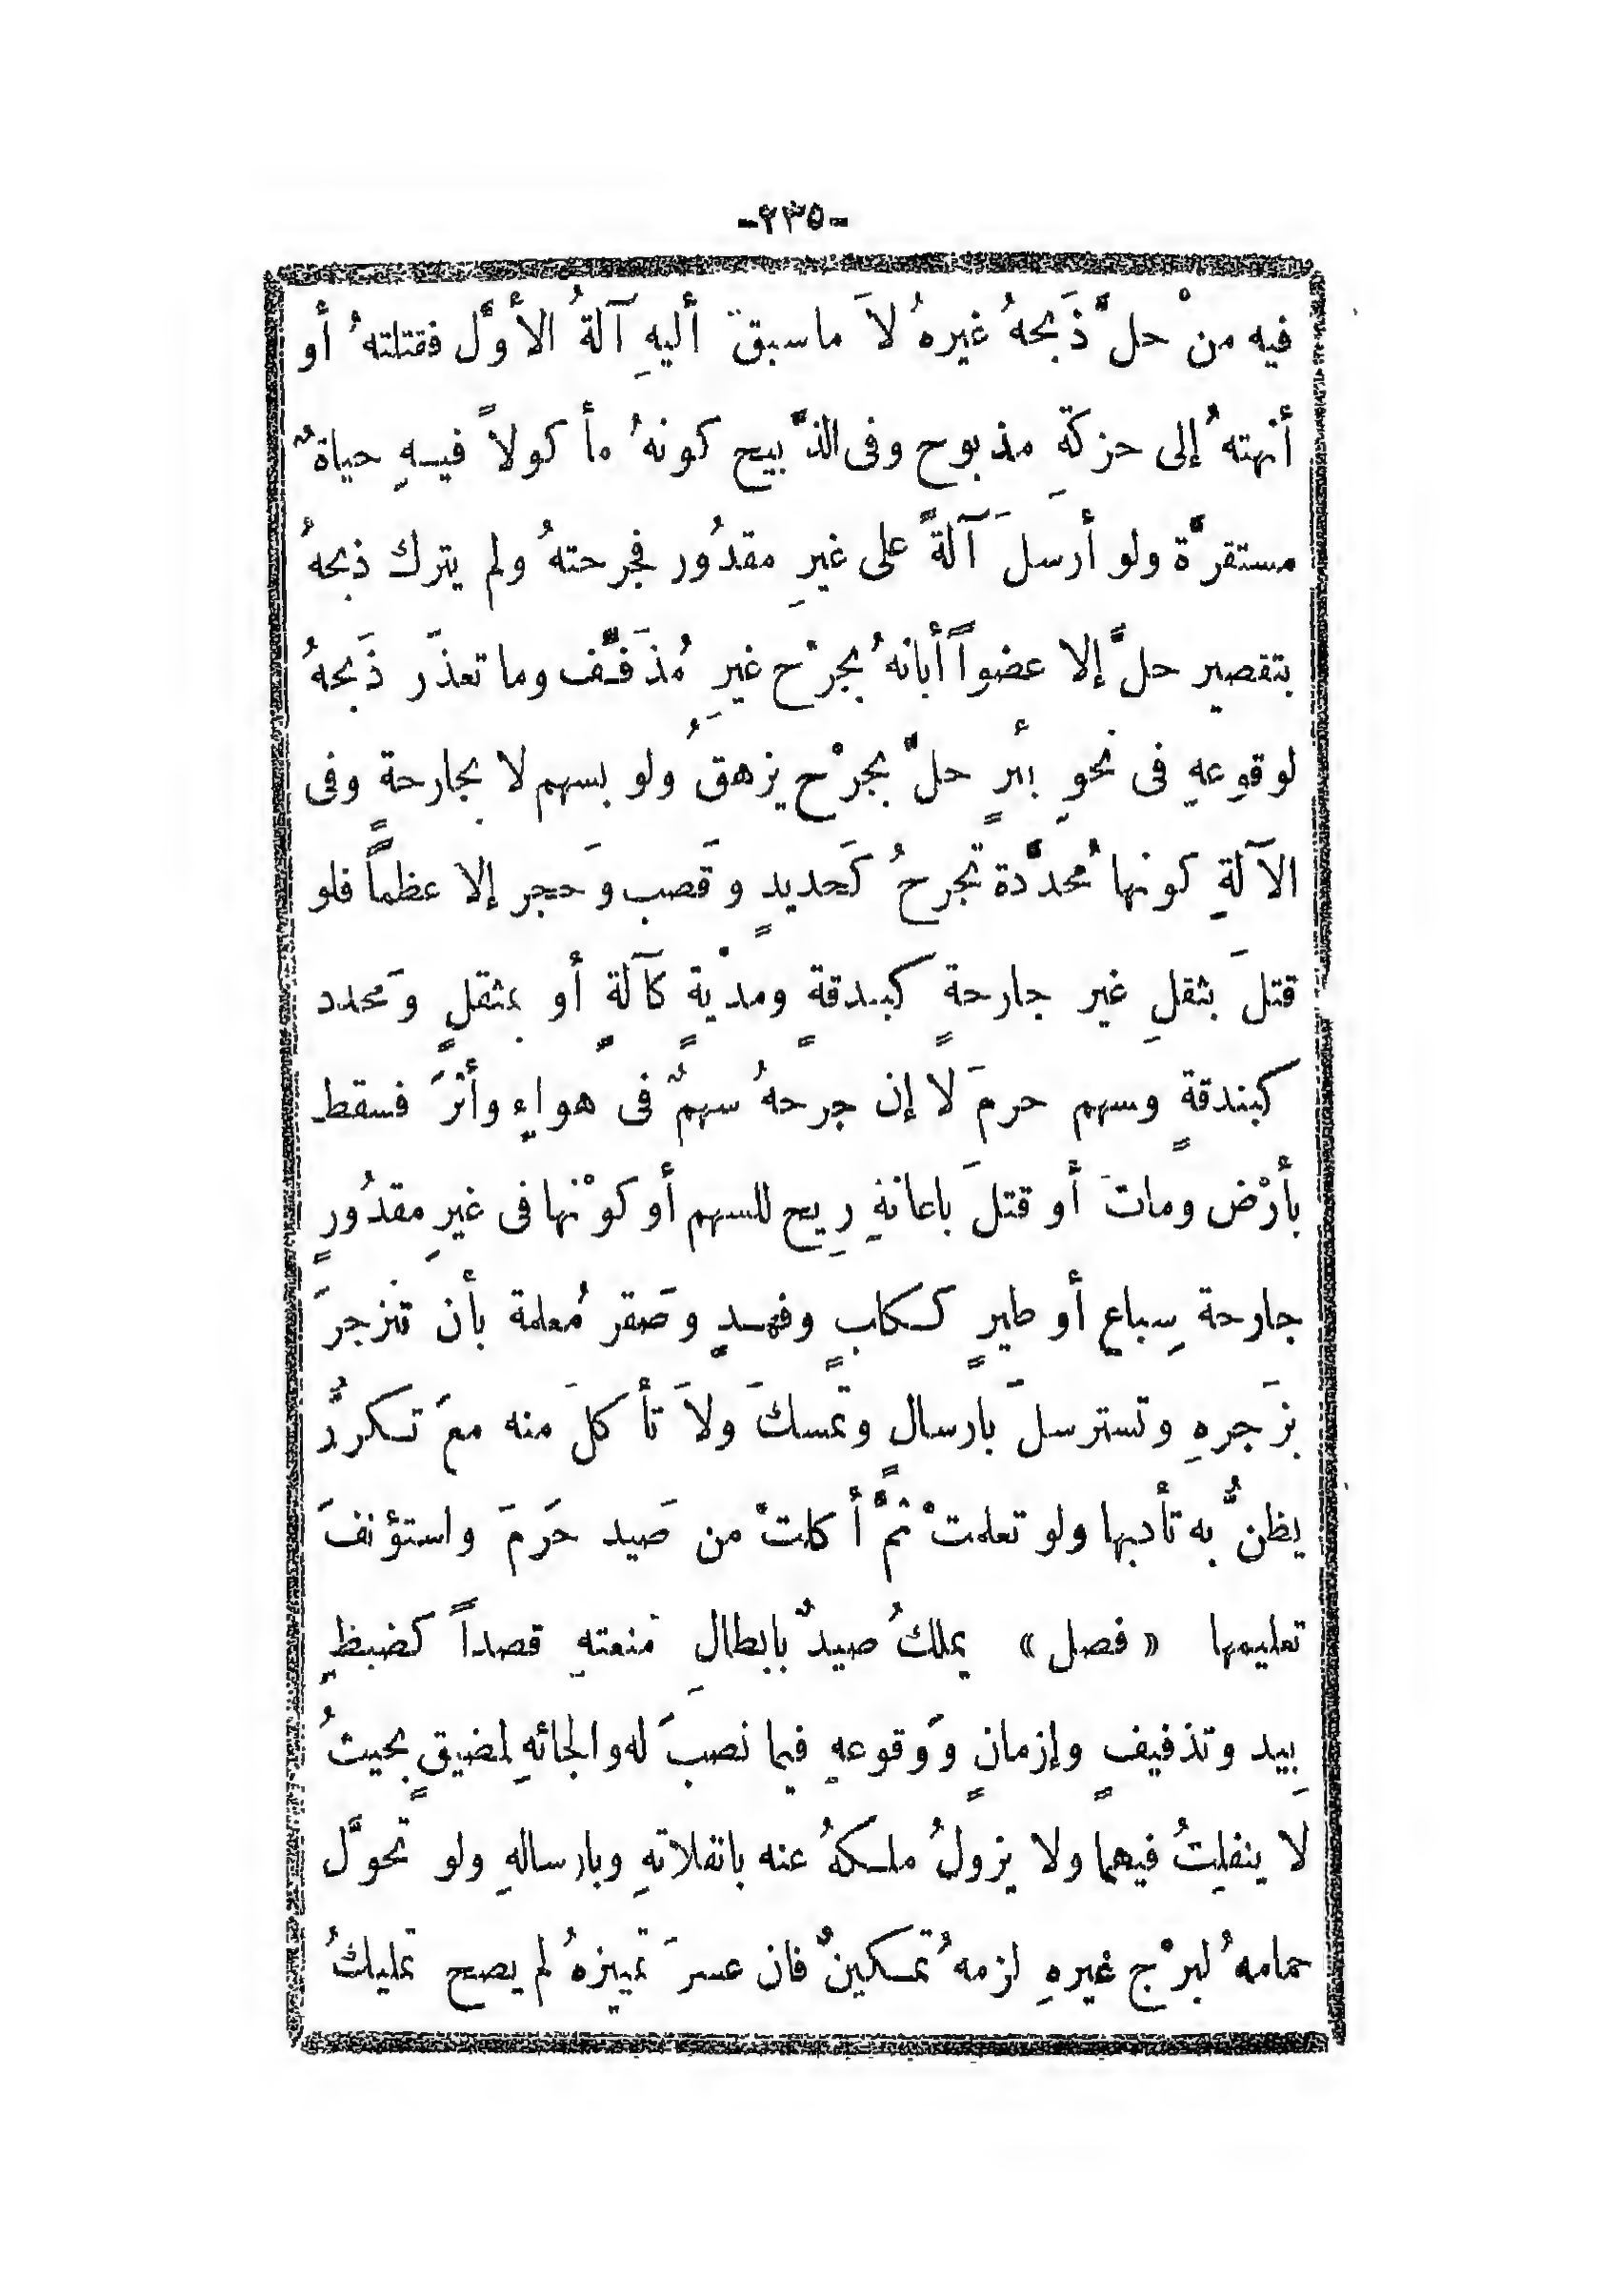 -٢٣٥-
فيه منْ حلَّ ذَبحهُ غيرهُ لاَ ماسبقَ أليهِ آلةُ الأوَّل فقتلتهُ أو
أنهتهُ إلى حركةِ مذبوح وفى الذَّبيح كونهُ مأكولاً فيهِ حياةٌ
مستقرَّة ولو أرسلَ آلةً على غيرِ مقدُور فجرحتهُ ولم يترك ذبحهُ
بتقصير حلَّ إلا عضواً أبانهُ بجرْح غيرِ مُذَفَّف وما تعذَّر ذَبحهُ
لوقوعهِ فى نحوِ بئرٍ حلَّ بجرْح يزهقُ ولو بسهم لا بجارحةٍ وفى
الآلةِ كونها مُحدَّدة تَجرحُ كَحديدٍ وقَصب وَحجر إلا عظماً فلو
قتلَ بثقلِ غير جارحةٍ كبندقةٍ ومدْيةٍ كآلةٍ أو بمثقلٍ وَمحدد
كبندقةٍ وسهم حرمَ لا إن جرحهُ سهمٌ فى هواءٍ وأثرَ فسقط
بأرْض وماتَ أو قتلَ باعانةِ رِيح للسهم أو كوْنها فى غيرِ مقدُورٍ
جارحة سِباعٍ أو طيرٍ ككابٍ وفهدٍ وصَقر مُعلمة بأن تنزجرَ
بزَجرهِ وتسترسلَ بارسالٍ وتمسكَ ولاَ تأكلَ منه معَ تكررُّ
يظنُّ به تأدبها ولو تعلمتْ ثمَّ أكلتْ من صَيد حَرَمَ واستؤنفَ
تعليمها « فصل » يملكُ صيدٌ بابطالِ مَنعتهِ قصداً كضبطِ
بِيد وتذفيفٍ وإزمانٍ وَوقوعهِ فيما نصبَ له والجائهِ لمضيقٍ بحيثُ
لا ينفلِتُ فيهما ولا يزولُ ملكهُ عنه بانفلاتهِ وبارسالهِ ولو تحوَّل
حمامهُ لبرْج غيرهِ لزمهُ تمكينٌ فان عسرَ تمييزهُ لم يصح تمليكُ